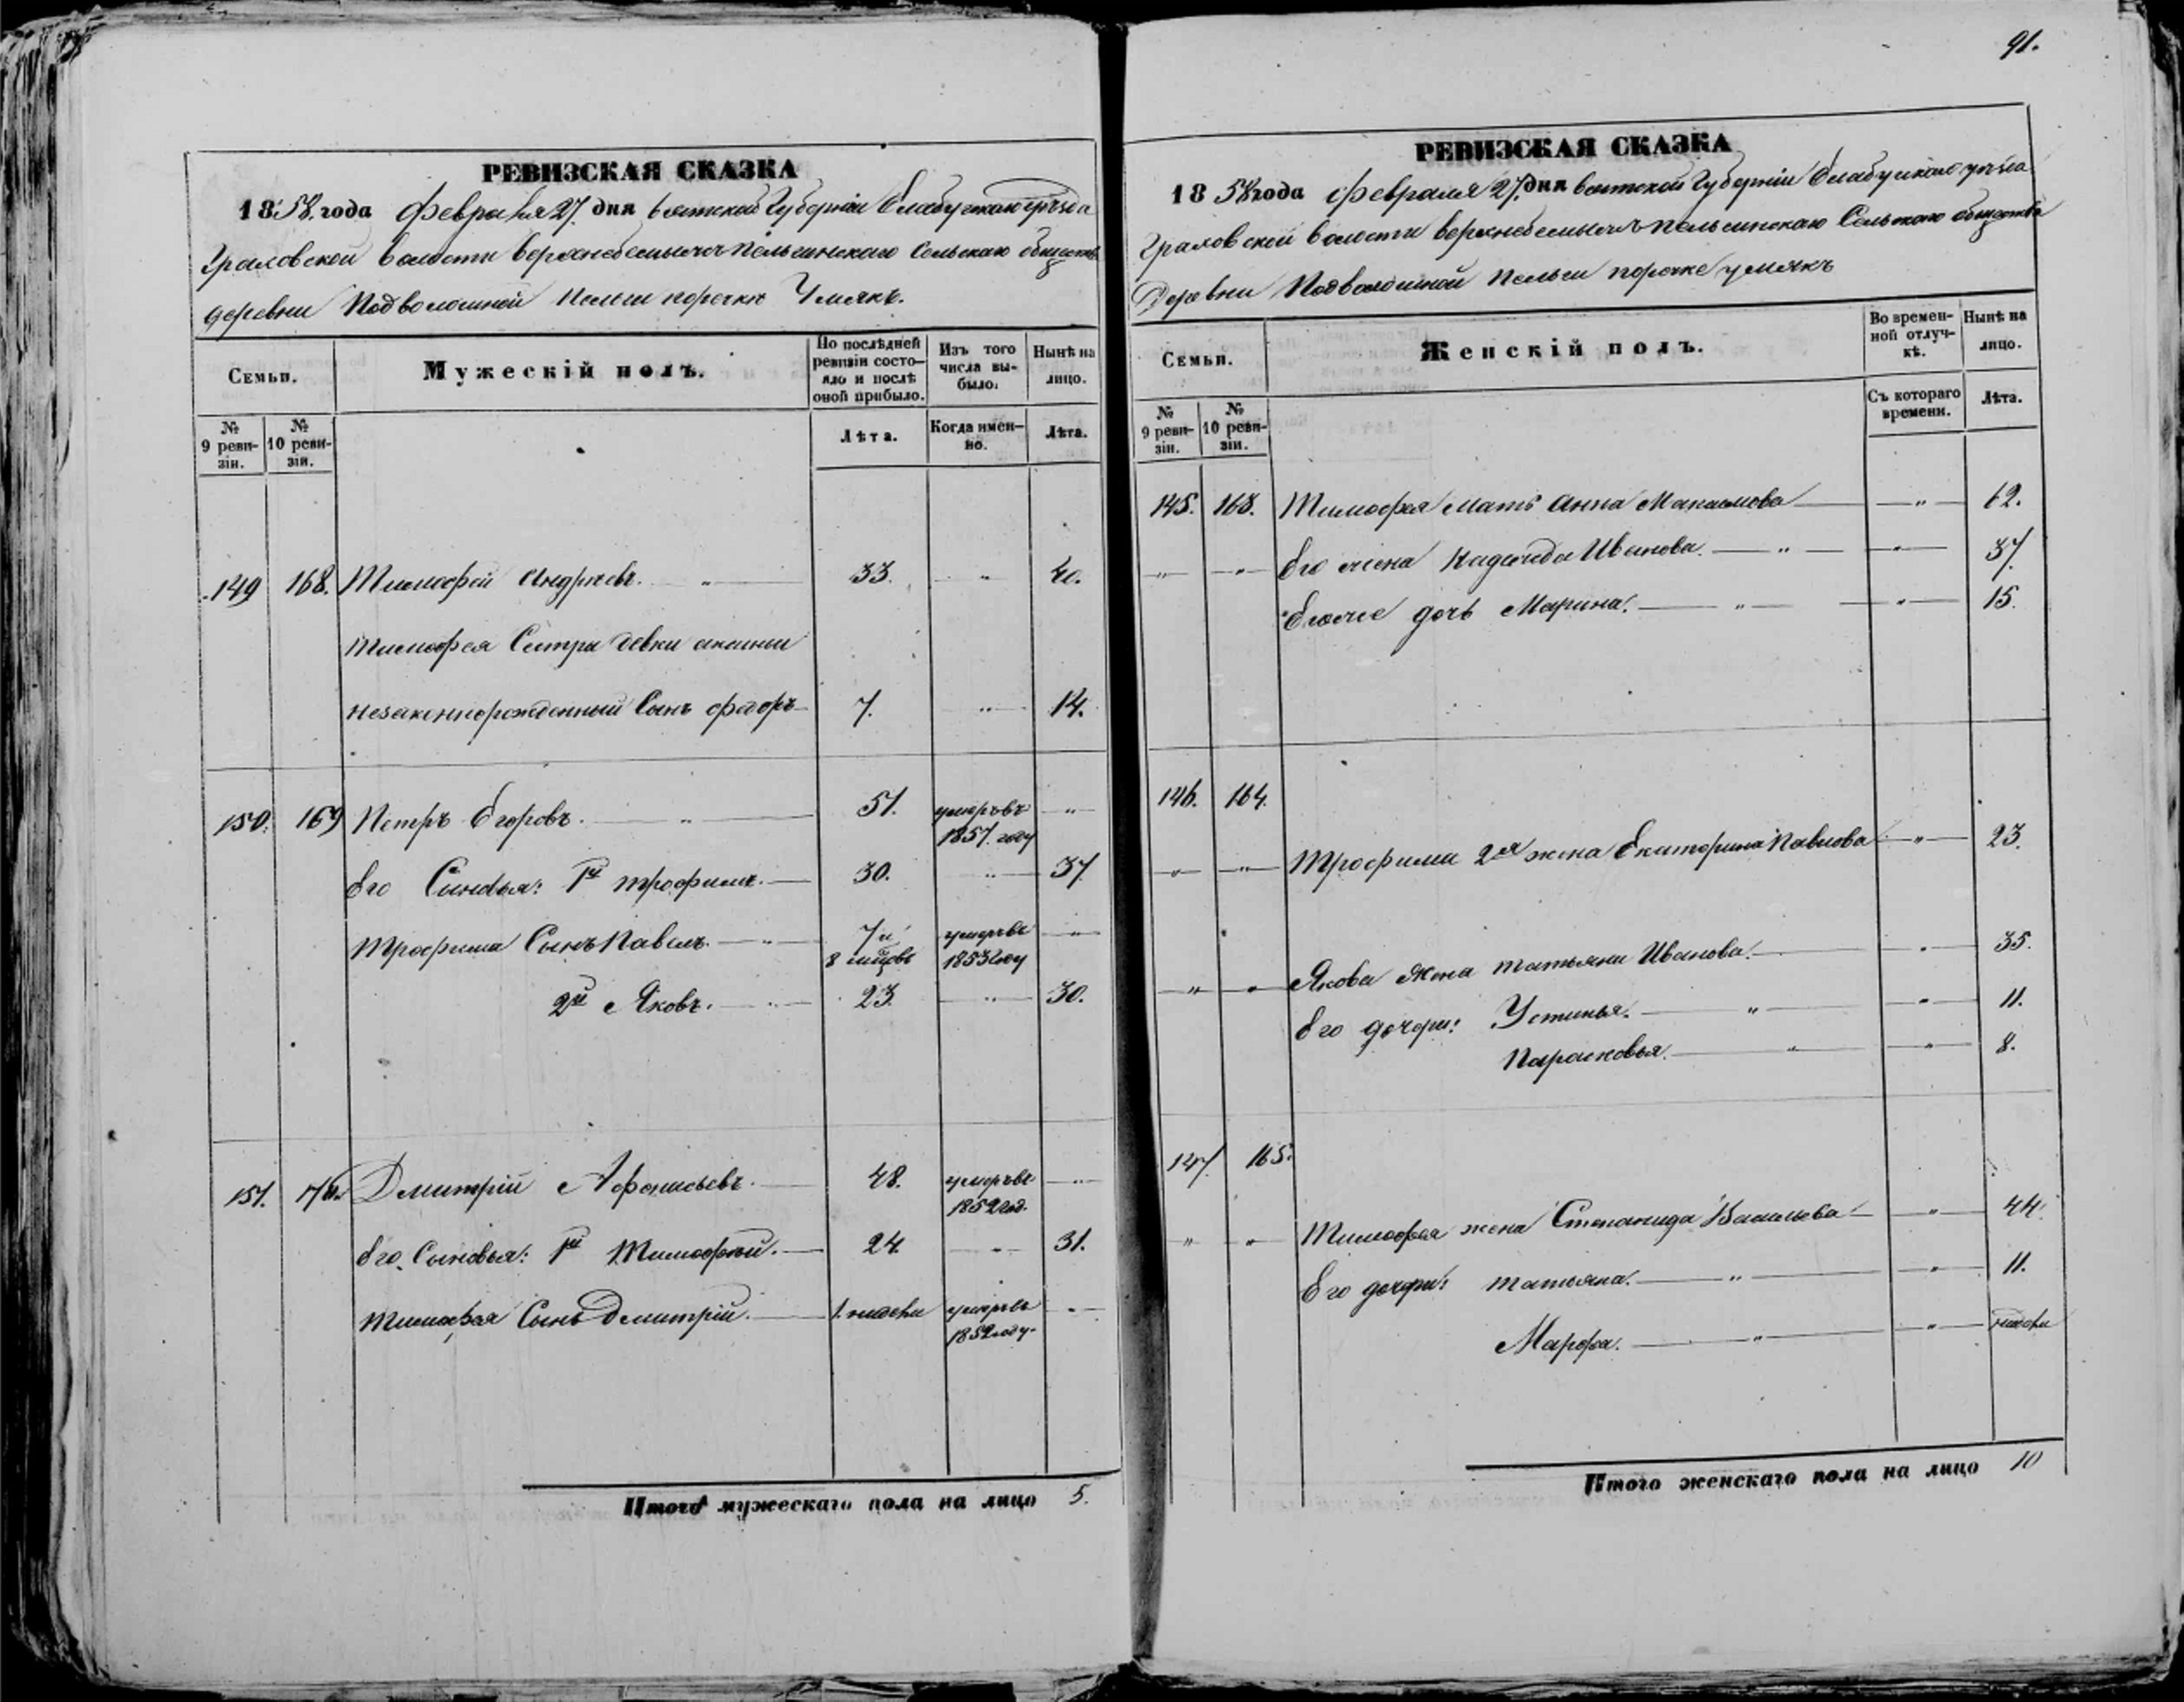 РЕВИЗСКАЯ СКАЗКА
1858. года февраля 27. дня вятской Губерніи Елабужскаго уѣзда
Граховской волости верхне Пельгинскаго Сельскаго общества
деревни Подволошной Пельги поречке Умякъ.
Семьи.
Мужескій полъ.
По послѣдней ревизіи состояло и послѣ оной прибыло.
Изъ того числа выбыло.
Нынѣ на лицо.
№ 9 ревизіи.
№ 10 ревизіи.
Лѣта.
Когда именно.
Лѣта.
149 168. Тимофей Андрѣевъ. — " — 33. — " — 40.
Тимофея Сестры девки аксиньи
незаконнорожденный Сынъ федоръ — 7. — " — 14.
150. 169 Петръ Егоровъ. — " — 51. умеръ въ 1857. году — " —
Его Сыновья: 1й трофимъ. — 30. — " — 37
трофима Сынъ Павелъ. — " — 7 и 8 мѣцовъ умеръ въ 1853 году — " —
2й Яковъ. — " — 23. — " — 30.
151. 170. Дмитрій Афонасьевъ. — 48. умеръ въ 1852 год. — " —
Его Сыновья: 1й Тимофѣй. — 24. — " — 31.
Тимофея Сынъ Дмитрій. — 1. недели умеръ въ 1852 году. — " —
Итого мужескаго пола на лицо 5.
91.
РЕВИЗСКАЯ СКАЗКА
1858 года февраля 27. дня вятской Губерніи Елабужскаго уѣзда
Граховской волости верхне Пельгинскаго Сельскаго общества
Деревни Подволошной Пельги поречке умякъ
Семьи.
Женскій полъ.
Во временной отлучкѣ.
Нынѣ на лицо.
№ 9 ревизіи.
№ 10 ревизіи.
Съ котораго времени.
Лѣта.
145. 168. Тимофея Мать Анна Максимова — " — 62.
— " — — " — Его жена Надежда Иванова. — " — — " — 37.
Его же дочь Марина. — " — — " — 15.
146. 164.
— " — — " — Трофима 2я жена Екатерина Павлова — " — 23.
— " — " — Якова Жена татьяна Иванова. — " — 35.
Его дочери: Устинья. — " — " — 11.
Парасковья. — " — — " — 8.
147. 165.
" " Тимофея жена Степанида — " — 44.
Его дочери: татьяна. — " — — " — 11.
Марфа. — " — — " — недели
Итого женскаго пола на лицо 10